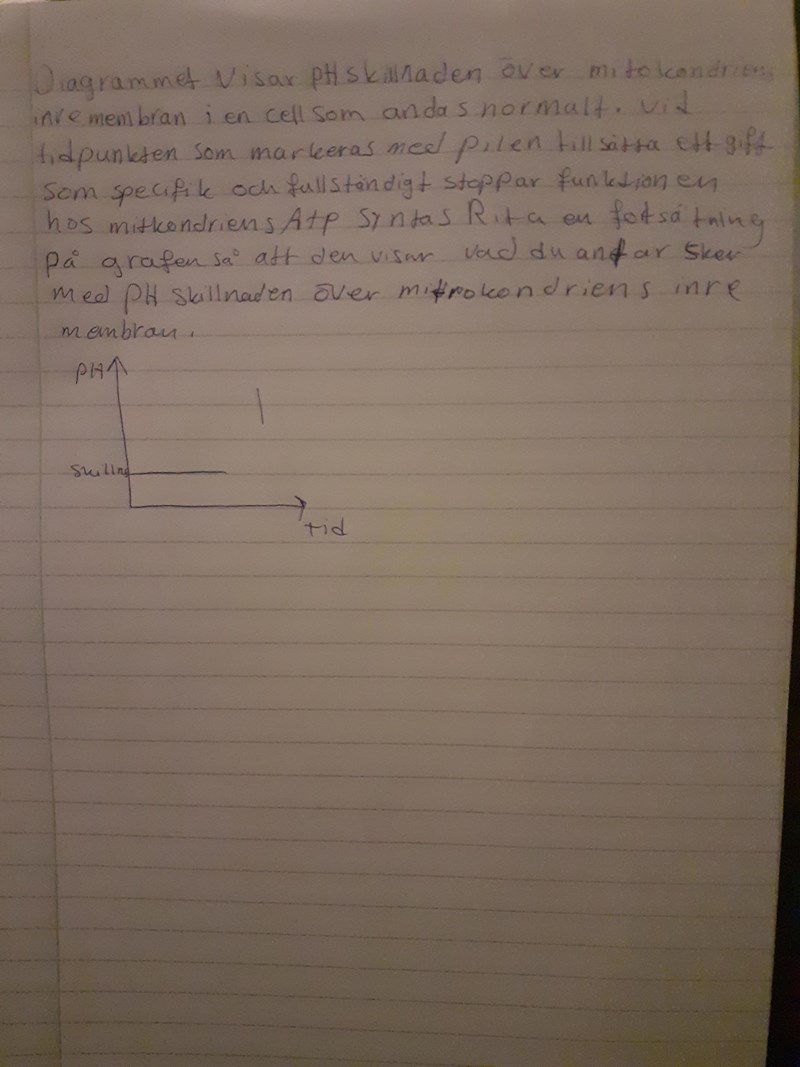 Diagrammet visar pH skillnaden över mitokondriens
inre membran i en cell som andas normalt. vid
tidpunkten som markeras med pilen tillsätta ett gift
som specifik och fullständigt stoppar funktionen
hos mitkondriens Atp syntas Rita en fotsätning
på grafen så att den visar vad du antar sker
med pH skillnaden över mitrokondriens inre
membran.
pH
Skilln
tid